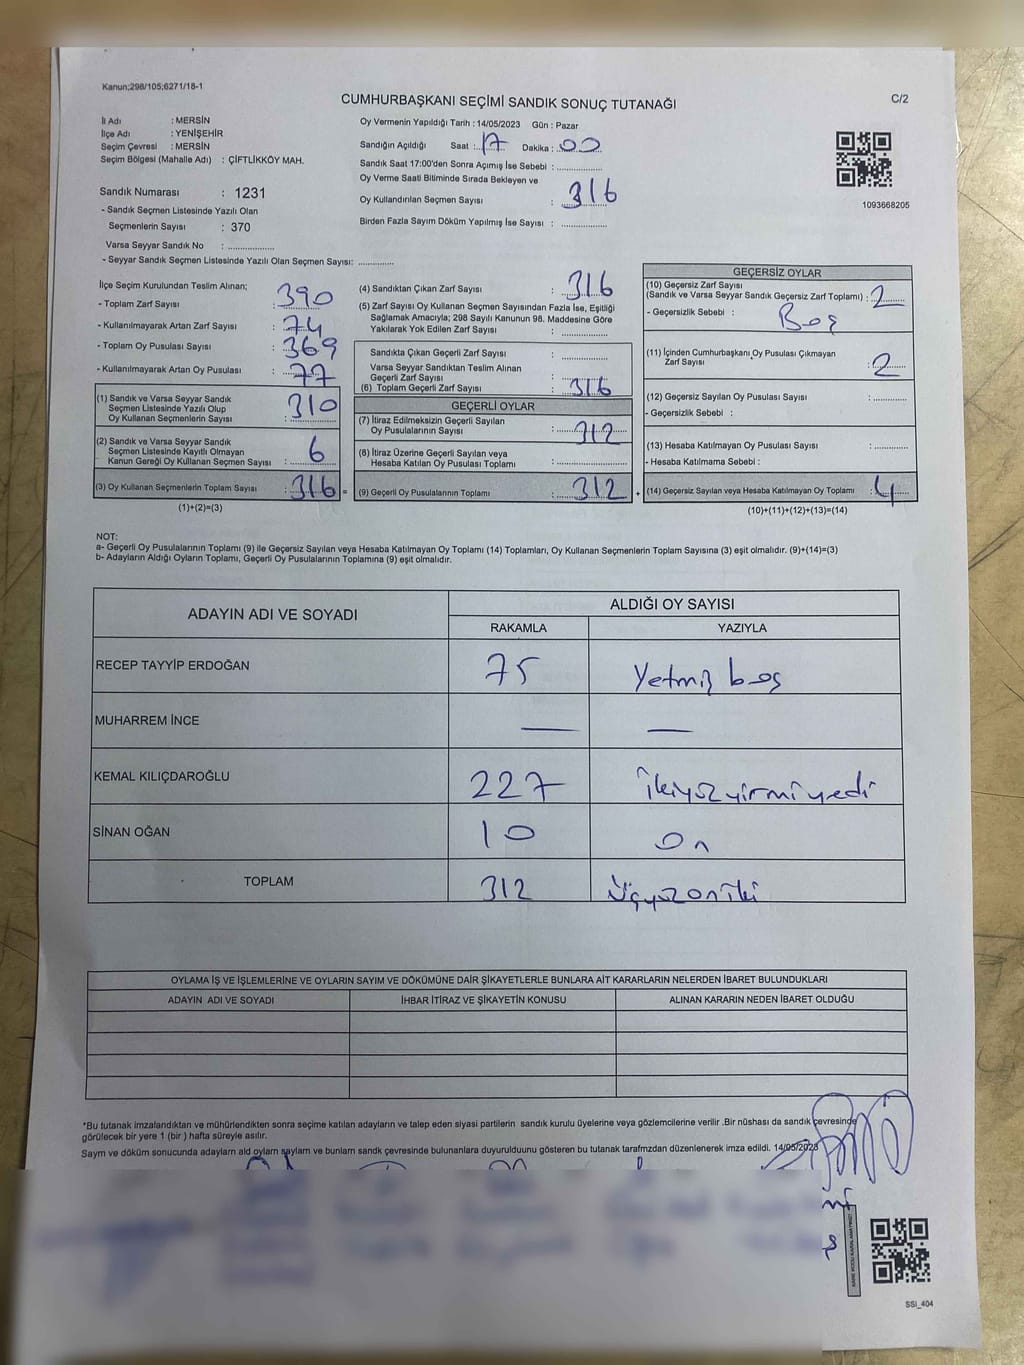 Kanun;298/105;6271/18-1
C/2
CUMHURBAŞKANI SEÇİMİ SANDIK SONUÇ TUTANAĞI
İl Adı : MERSİN
İlçe Adı : YENİŞEHİR
Seçim Çevresi : MERSİN
Seçim Bölgesi (Mahalle Adı) : ÇİFTLİKKÖY MAH.
Sandık Numarası : 1231
- Sandık Seçmen Listesinde Yazılı Olan
Seçmenlerin Sayısı : 370
Varsa Seyyar Sandık No : ................
- Seyyar Sandık Seçmen Listesinde Yazılı Olan Seçmen Sayısı: ............
Oy Vermenin Yapıldığı Tarih : 14/05/2023 Gün : Pazar
Sandığın Açıldığı Saat : 17 Dakika : 00
Sandık Saat 17:00'den Sonra Açımış İse Sebebi : ................
Oy Verme Saati Bitiminde Sırada Bekleyen ve
Oy Kullandırılan Seçmen Sayısı : 316
Birden Fazla Sayım Döküm Yapılmış İse Sayısı : ................
1093668205
İlçe Seçim Kurulundan Teslim Alınan;
- Toplam Zarf Sayısı : 390
- Kullanılmayarak Artan Zarf Sayısı : 74
- Toplam Oy Pusulası Sayısı : 369
- Kullanılmayarak Artan Oy Pusulası : 77
(1) Sandık ve Varsa Seyyar Sandık
Seçmen Listesinde Yazılı Olup
Oy Kullanan Seçmenlerin Sayısı : 310
(2) Sandık ve Varsa Seyyar Sandık
Seçmen Listesinde Kayıtlı Olmayan
Kanun Gereği Oy Kullanan Seçmen Sayısı : 6
(3) Oy Kullanan Seçmenlerin Toplam Sayısı : 316 =
(1)+(2)=(3)
(4) Sandıktan Çıkan Zarf Sayısı : 316
(5) Zarf Sayısı Oy Kullanan Seçmen Sayısından Fazla İse, Eşitliği
Sağlamak Amacıyla; 298 Sayılı Kanunun 98. Maddesine Göre
Yakılarak Yok Edilen Zarf Sayısı : ................
Sandıkta Çıkan Geçerli Zarf Sayısı : ................
Varsa Seyyar Sandıktan Teslim Alınan
Geçerli Zarf Sayısı : ................
(6) Toplam Geçerli Zarf Sayısı : 316
GEÇERLİ OYLAR
(7) İtiraz Edilmeksizin Geçerli Sayılan
Oy Pusulalarının Sayısı : 312
(8) İtiraz Üzerine Geçerli Sayılan veya
Hesaba Katılan Oy Pusulası Toplamı : ................
(9) Geçerli Oy Pusulalarının Toplamı : 312 +
GEÇERSİZ OYLAR
(10) Geçersiz Zarf Sayısı
(Sandık ve Varsa Seyyar Sandık Geçersiz Zarf Toplamı) : 2
- Geçersizlik Sebebi : Boş
(11) İçinden Cumhurbaşkanı Oy Pusulası Çıkmayan
Zarf Sayısı : 2
(12) Geçersiz Sayılan Oy Pusulası Sayısı : ............
- Geçersizlik Sebebi :
(13) Hesaba Katılmayan Oy Pusulası Sayısı : ............
- Hesaba Katılmama Sebebi :
(14) Geçersiz Sayılan veya Hesaba Katılmayan Oy Toplamı : 4
(10)+(11)+(12)+(13)=(14)
NOT:
a- Geçerli Oy Pusulalarının Toplamı (9) ile Geçersiz Sayılan veya Hesaba Katılmayan Oy Toplamı (14) Toplamları, Oy Kullanan Seçmenlerin Toplam Sayısına (3) eşit olmalıdır. (9)+(14)=(3)
b- Adayların Aldığı Oyların Toplamı, Geçerli Oy Pusulalarının Toplamına (9) eşit olmalıdır.
ADAYIN ADI VE SOYADI ALDIĞI OY SAYISI
RAKAMLA YAZIYLA
RECEP TAYYİP ERDOĞAN 75 Yetmiş beş
MUHARREM İNCE — —
KEMAL KILIÇDAROĞLU 227 İkiyüzyirmiyedi
SİNAN OĞAN 10 On
TOPLAM 312 Üçyüzoniki
OYLAMA İŞ VE İŞLEMLERİNE VE OYLARIN SAYIM VE DÖKÜMÜNE DAİR ŞİKAYETLERLE BUNLARA AİT KARARLARIN NELERDEN İBARET BULUNDUKLARI
ADAYIN ADI VE SOYADI İHBAR İTİRAZ VE ŞİKAYETİN KONUSU ALINAN KARARIN NEDEN İBARET OLDUĞU
*Bu tutanak imzalandıktan ve mühürlendikten sonra seçime katılan adayların ve talep eden siyasi partilerin sandık kurulu üyelerine veya gözlemcilerine verilir .Bir nüshası da sandık çevresinde
görülecek bir yere 1 (bir ) hafta süreyle asılır.
Sayım ve döküm sonucunda adayların ald oyların saylam ve bunlam sandk çevresinde bulunanlara duyurulduunu gösteren bu tutanak tarafmzdan düzenlenerek imza edildi. 14/05/2023
SSI_404